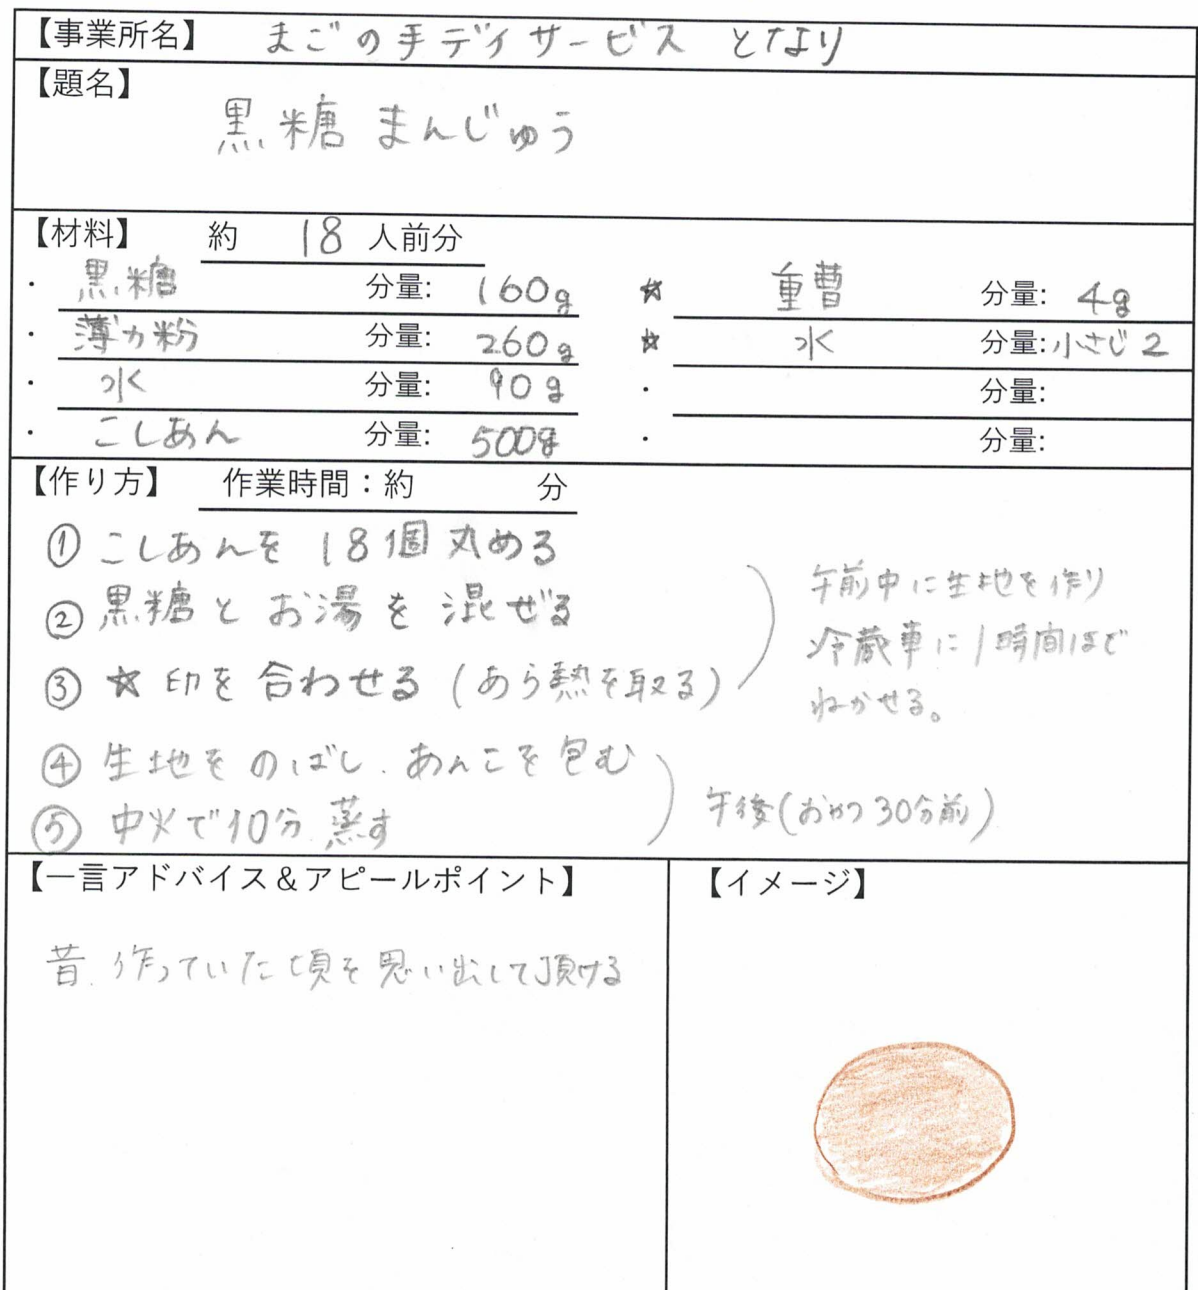 【事業所名】 まごの手デイサービス となり
【題名】
黒糖 まんじゅう
【材料】 約 18 人前分
・ 黒糖 分量: 160g ☆ 重曹 分量: 4g
・ 薄力粉 分量: 260g ☆ 水 分量: 小さじ2
・ 水 分量: 90g ・ 分量:
・ こしあん 分量: 500g ・ 分量:
【作り方】 作業時間：約 分
① こしあんを 18個 丸める
② 黒糖と お湯を 混ぜる
③ ☆印を 合わせる (あら熱を取る)
午前中に生地を作り
冷蔵車に1時間ほど
ねかせる。
④ 生地を のばし、あんこを 包む
⑤ 中火で10分 蒸す
午後(おやつ 30分前)
【一言アドバイス＆アピールポイント】
昔、作っていた頃を思い出して頂ける
【イメージ】